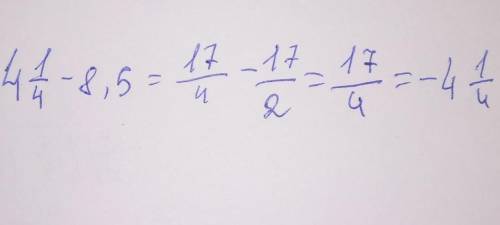 4 1/4 - 8,5 = 17/4 - 17/2 = 17/4 = -4 1/4